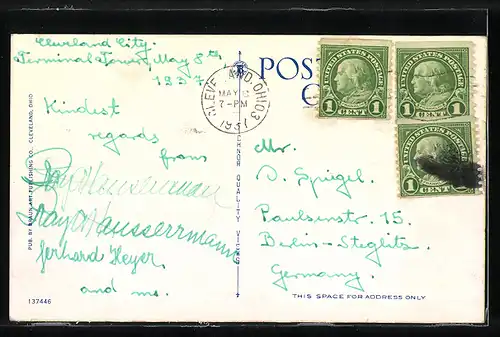 Cleveland City.
Terminal Tower, May 8th
1937
Kindest
regards
from
Ray Hausserman
Ray Hausserman
Gerhard Heyer
and me.
137446
PUB. BY BRAUN ART PUBLISHING CO., CLEVELAND, OHIO
CLEVELAND, OHIO 3
MAY
7-PM
1937
POST
UNITED STATES POSTAGE
1 CENT 1
UNITED STATES POSTAGE
1 1
UNITED STATES POSTAGE
1 CENT
Mr.
D. Spiegel.
Paulsenstr. 15.
Berlin-Steglitz
Germany.
THIS SPACE FOR ADDRESS ONLY